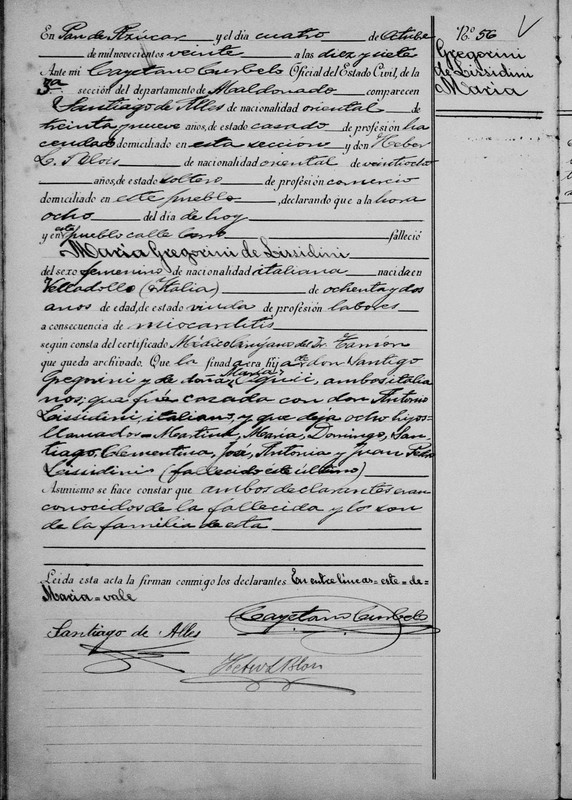 Nº 56
Gregorini
de Lissidini
María
En Pan de Azúcar y el día cuatro de Octubre
de mil novecientos veinte a las diez y siete
Ante mi Cayetano Curbelo Oficial del Estado Civil, de la
3ª sección del departamento de Maldonado comparecen
Santiago de Alles de nacionalidad oriental de
treinta y nueve años, de estado casado de profesión ha
cendado domiciliado en esta sección y don Heber
L. de nacionalidad oriental de veintiocho
años, de estado soltero de profesión comercio
domiciliado en este pueblo, declarando que a la hora
ocho del día de hoy
y en este pueblo calle falleció
María Gregorini de Lissidini
del sexo femenino de nacionalidad italiana nacida en
(Italia) de ochenta y dos
años de edad, de estado viuda de profesión labores
a consecuencia de miocarditis
según consta del certificado Médico Cirujano del Dr.
que queda archivado. Que la finada era hija de don Santiago
Gregorini y de doña María, ambos italia
nos; que fué casada con don Antonio
Lissidini, italiano, y que deja ocho hijos
llamados= Martina, María, Domingo, San
tiago, Clementina, José, Antonia y Juan Pedro
Lissidini (fallecido este último)
Asimismo se hace constar que ambos declarantes eran
conocidos de la fallecida y lo son
de la familia de esta
Leida esta acta la firman conmigo los declarantes En entre líneas=este=de=
María=vale
Cayetano Curbelo
Santiago de Alles